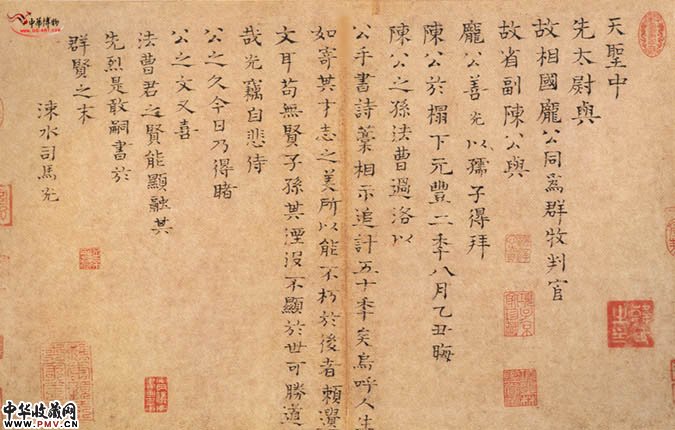 天聖中
先太尉與
故相國龐公同爲群牧判官
故省副陳公與
龐公善光以孺子得拜
陳公於榻下元豐二秊八月乙丑晦
陳公之孫法曹過洛以
公手書詩藁相示追計五十秊矣烏呼人生
如寄其才志之美所以能不朽於後者賴
文耳苟無賢子孫其湮沒不顯於世可勝道
哉光竊自悲侍
公之久今日乃得睹
公之文又喜
法曹君之賢能顯融其
先烈是敢嗣書於
群賢之末
涑水司馬光
中華博物
中华收藏网
WWW.PMV.CN